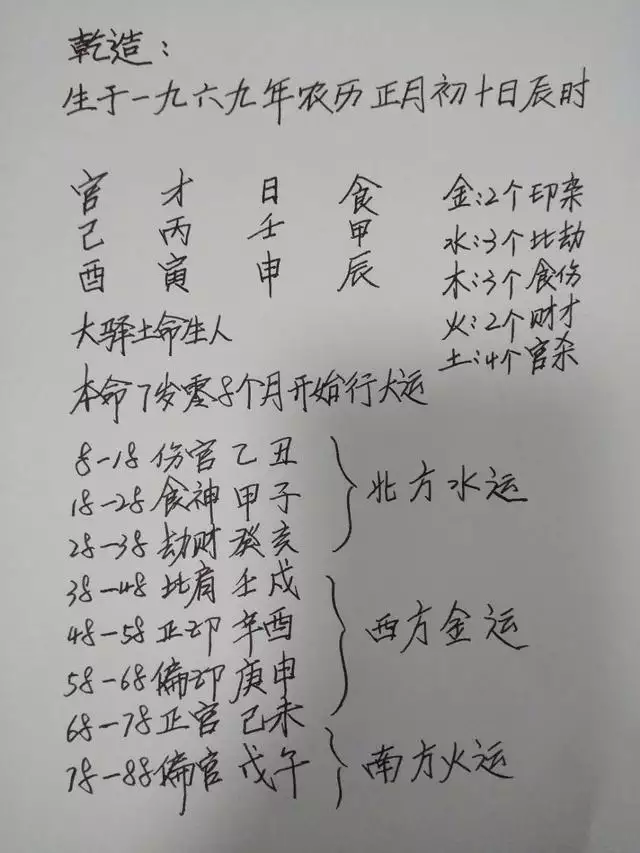 乾造：
生于一九六九年农历正月初十日辰时
官 才 日 食
己 丙 壬 甲
酉 寅 申 辰
金：2个印枭
水：3个比劫
木：3个食伤
火：2个财才
土：4个官杀
大驿土命生人
本命7岁零8个月开始行大运
8-18 伤官 乙丑
18-28 食神 甲子
28-38 劫财 癸亥
北方水运
38-48 比肩 壬戌
48-58 正印 辛酉
58-68 偏印 庚申
西方金运
68-78 正官 己未
78-88 偏官 戊午
南方火运